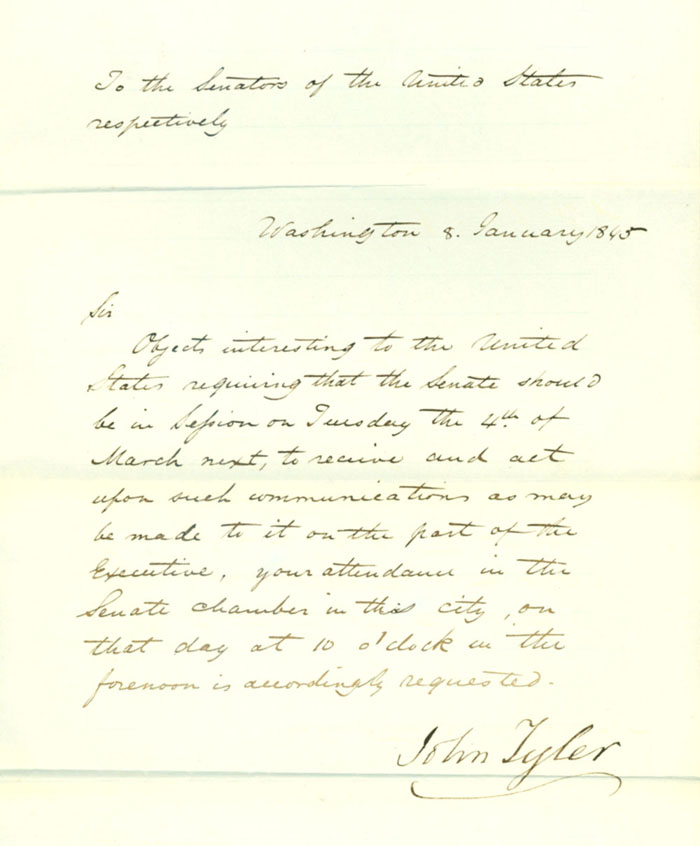 To the Senators of the United States
respectively
Washington 8. January 1845
Sir
Objects interesting to the United
States requiring that the Senate should
be in Session on Tuesday the 4th. of
March next, to receive and act
upon such communications as may
be made to it on the part of the
Executive, your attendance in the
Senate chamber in this city, on
that day at 10 o'clock in the
forenoon is accordingly requested.
John Tyler